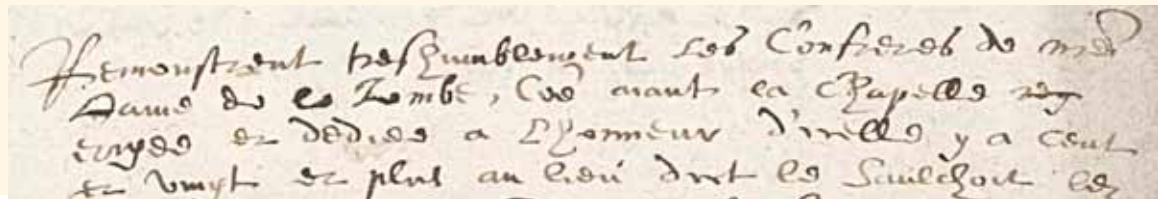 Remonstrent treshumblement Les Confreres de nre
Dame de le Tombe, Coē aiant la Chapelle
erigee et dediee a Lhonneur d'icelle y a cent
et vingt et plus au lieu dict le Saulchoit lez